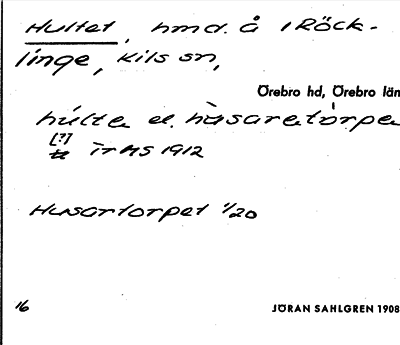 Hultet, hmd. å i Röck-
linge, Kils sn,
Örebro hd, Örebro län
húlte el. hùsaretòrpe
[?]
tr HS 1912
Husartorpet 1/20
16
JÖRAN SAHLGREN 1908